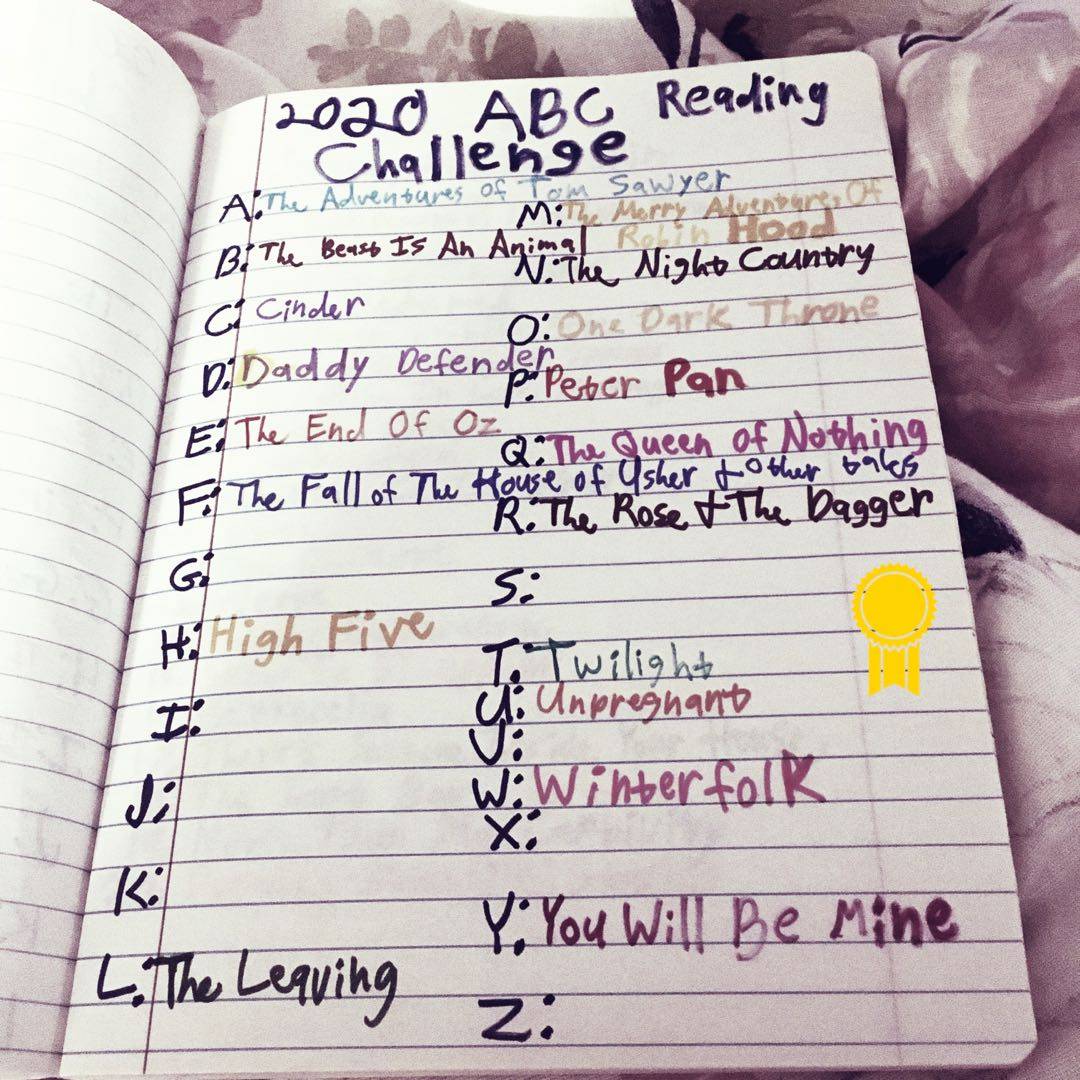 2020 ABC Reading
Challenge
A: The Adventures of Tom Sawyer
B: The Beast Is An Animal
C: Cinder
D: Daddy Defender
E: The End Of Oz
F: The Fall of The House of Usher & other tales
G:
H: High Five
I:
J:
K:
L: The Leaving
M: The Merry Adventures Of
Robin Hood
N: The Night Country
O: One Dark Throne
P: Peter Pan
Q: The Queen of Nothing
R: The Rose & The Dagger
S:
T: Twilight
U: Unpregnant
V:
W: Winterfolk
X:
Y: You Will Be Mine
Z: